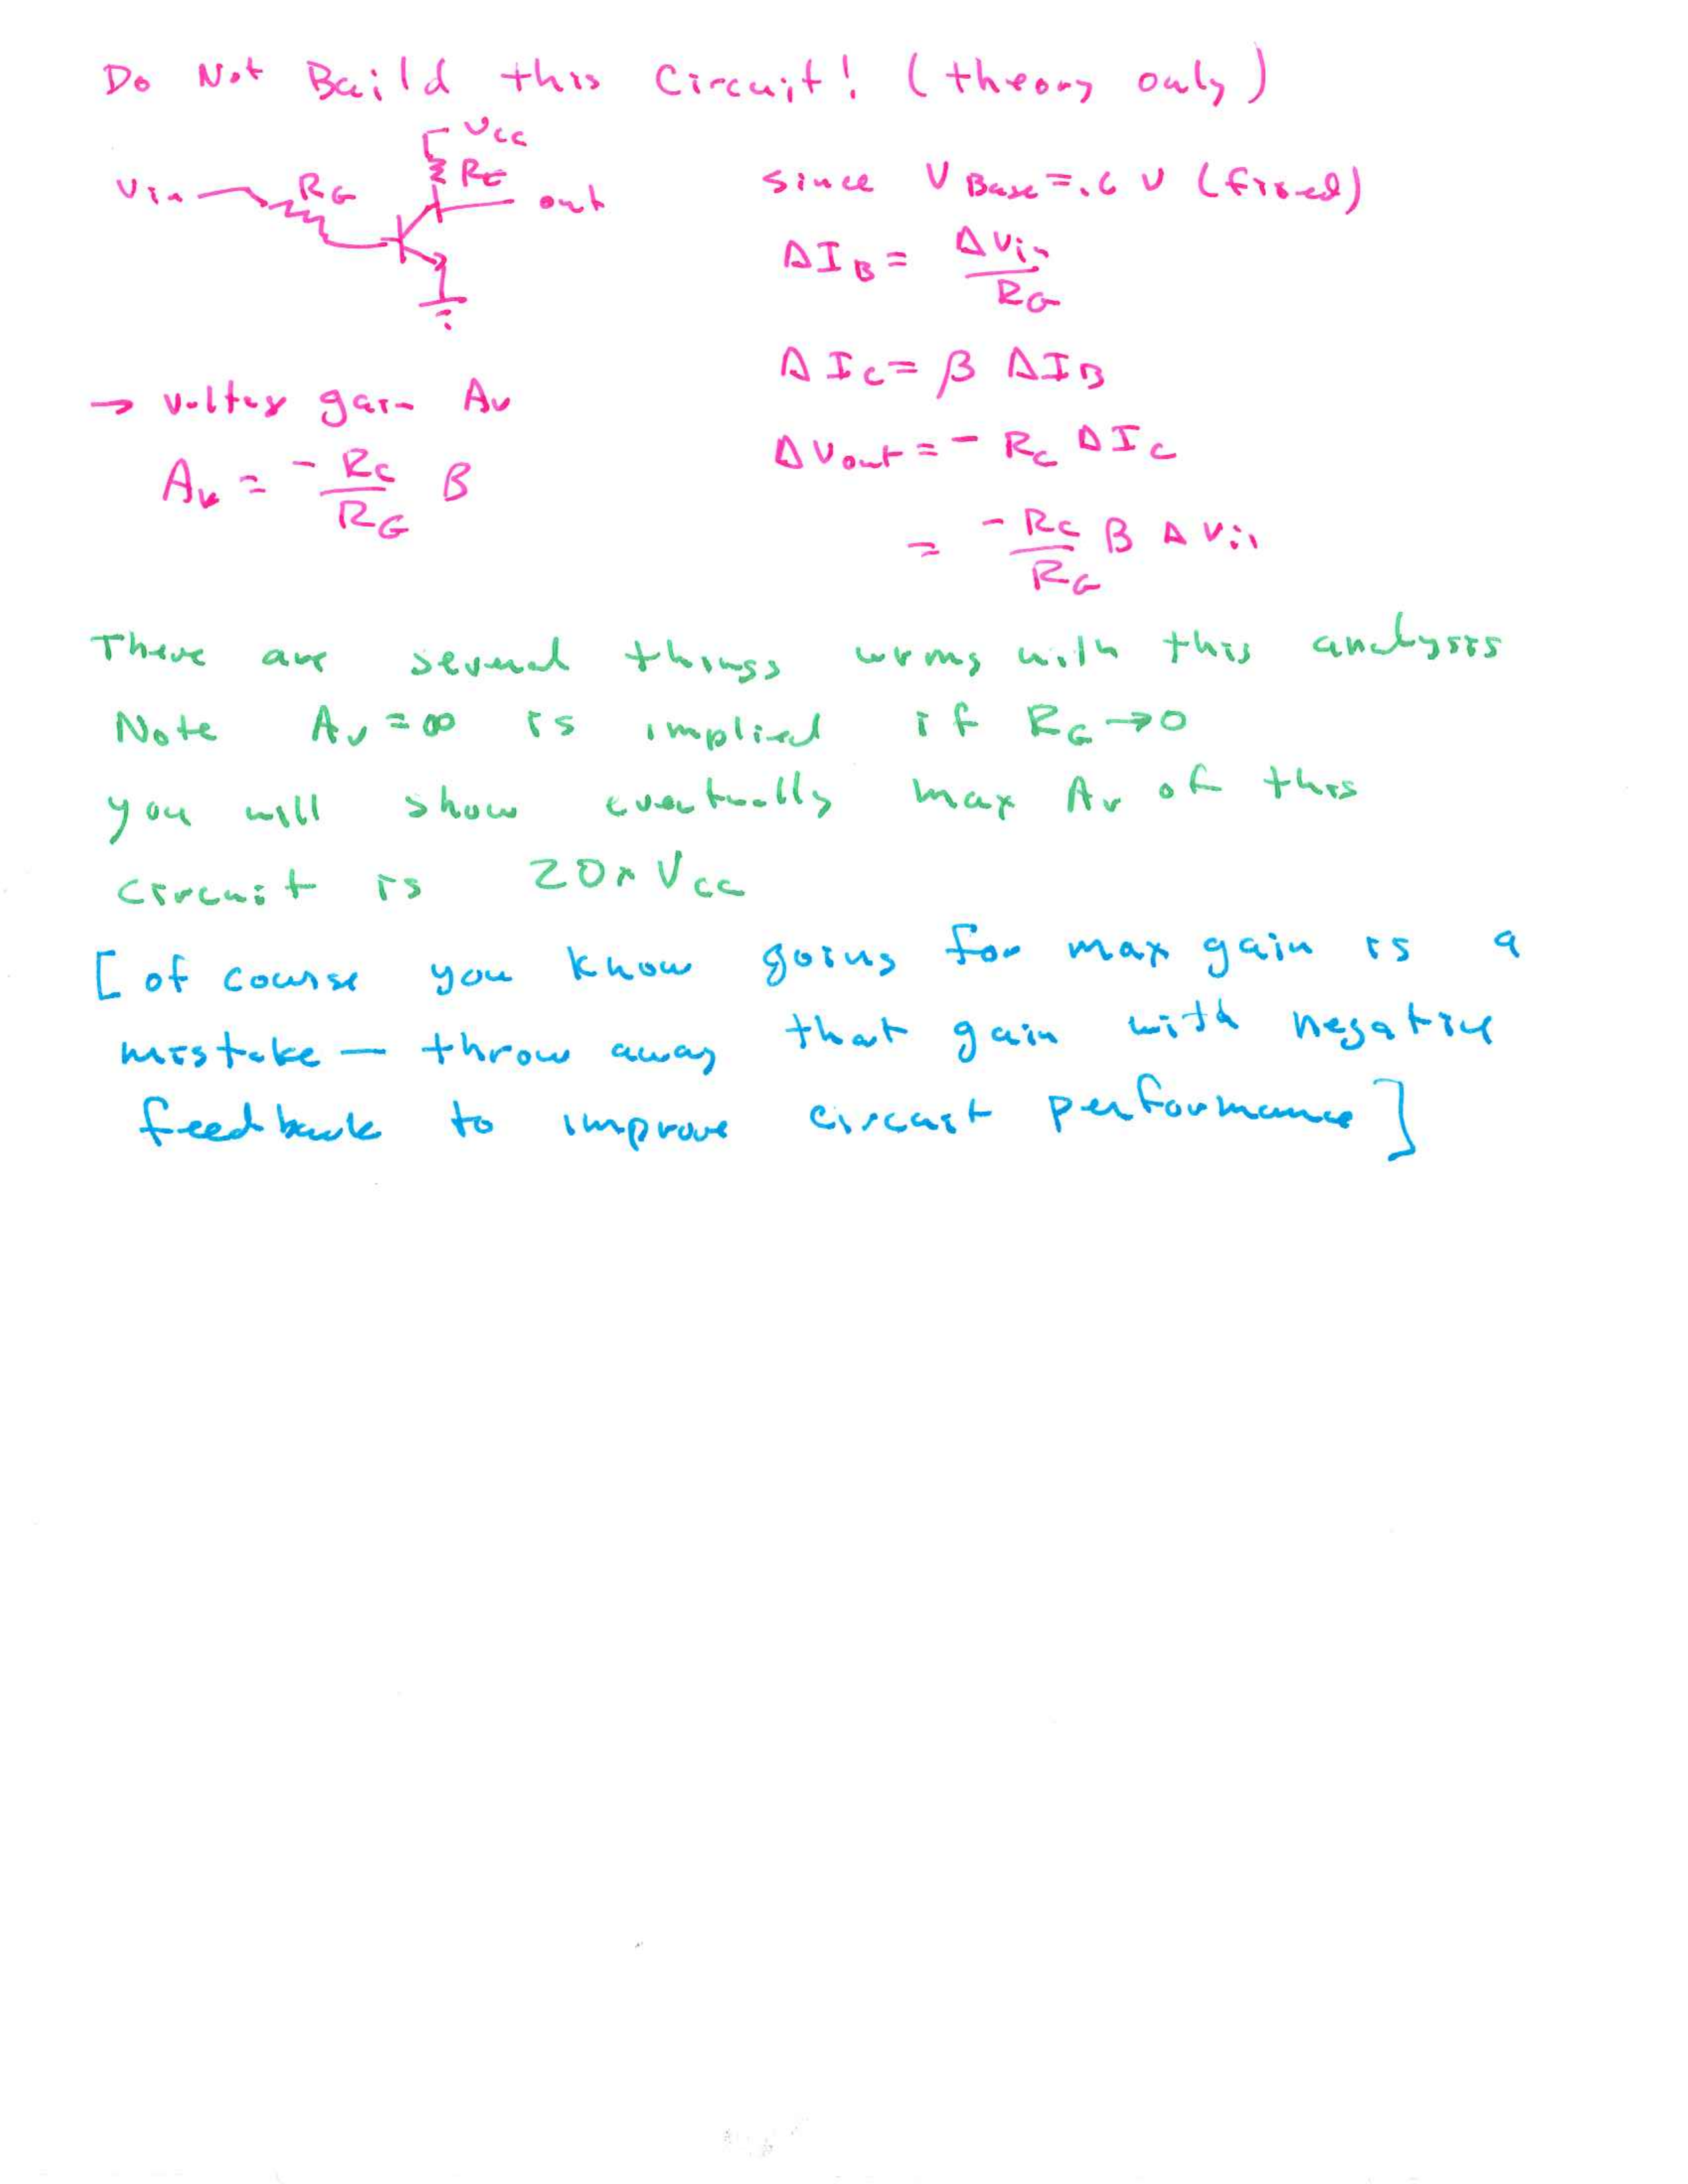 Do Not Build this Circuit! (theory only)
Vcc
RC
Vin
RG
out
since VBase = .6 V (fixed)
ΔIB = ΔVin / RG
ΔIC = β ΔIB
→ voltage gain Av
ΔVout = - RC ΔIC
Av = -RC / RG β
= -RC / RG β ΔVin
There are several things wrong with this analysis
Note Av = ∞ is implied if RG → 0
you will show eventually max Av of this
circuit is 20 × Vcc
[of course you know going for max gain is a
mistake — throw away that gain with negative
feedback to improve circuit performance]